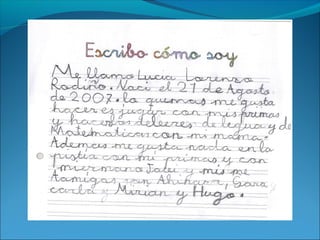 Escribo cómo soy
Me llamo Lucia Lorenzo
Rodiño. Naci el 21 de Agosto
de 2007. lo que mas me gusta
hacer es jugar con mis primas
y hacer los deberes de legua y de
Matematicas con mi mama.
Ademas me gusta nada en la
pistia con mi primas y con
mi me
Aamigas son Ainhara, Sara
carla y Mirian y Hugo.